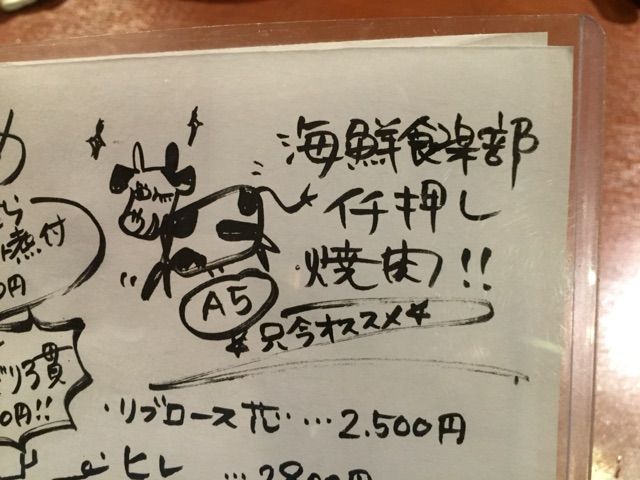 め
海鮮食楽部
イチ押し
焼肉!!
A5
★只今オススメ★
煮付
0円
にぎり3貫
0円!!
・リブロース芯・…2.500円
ヒレ …2800円